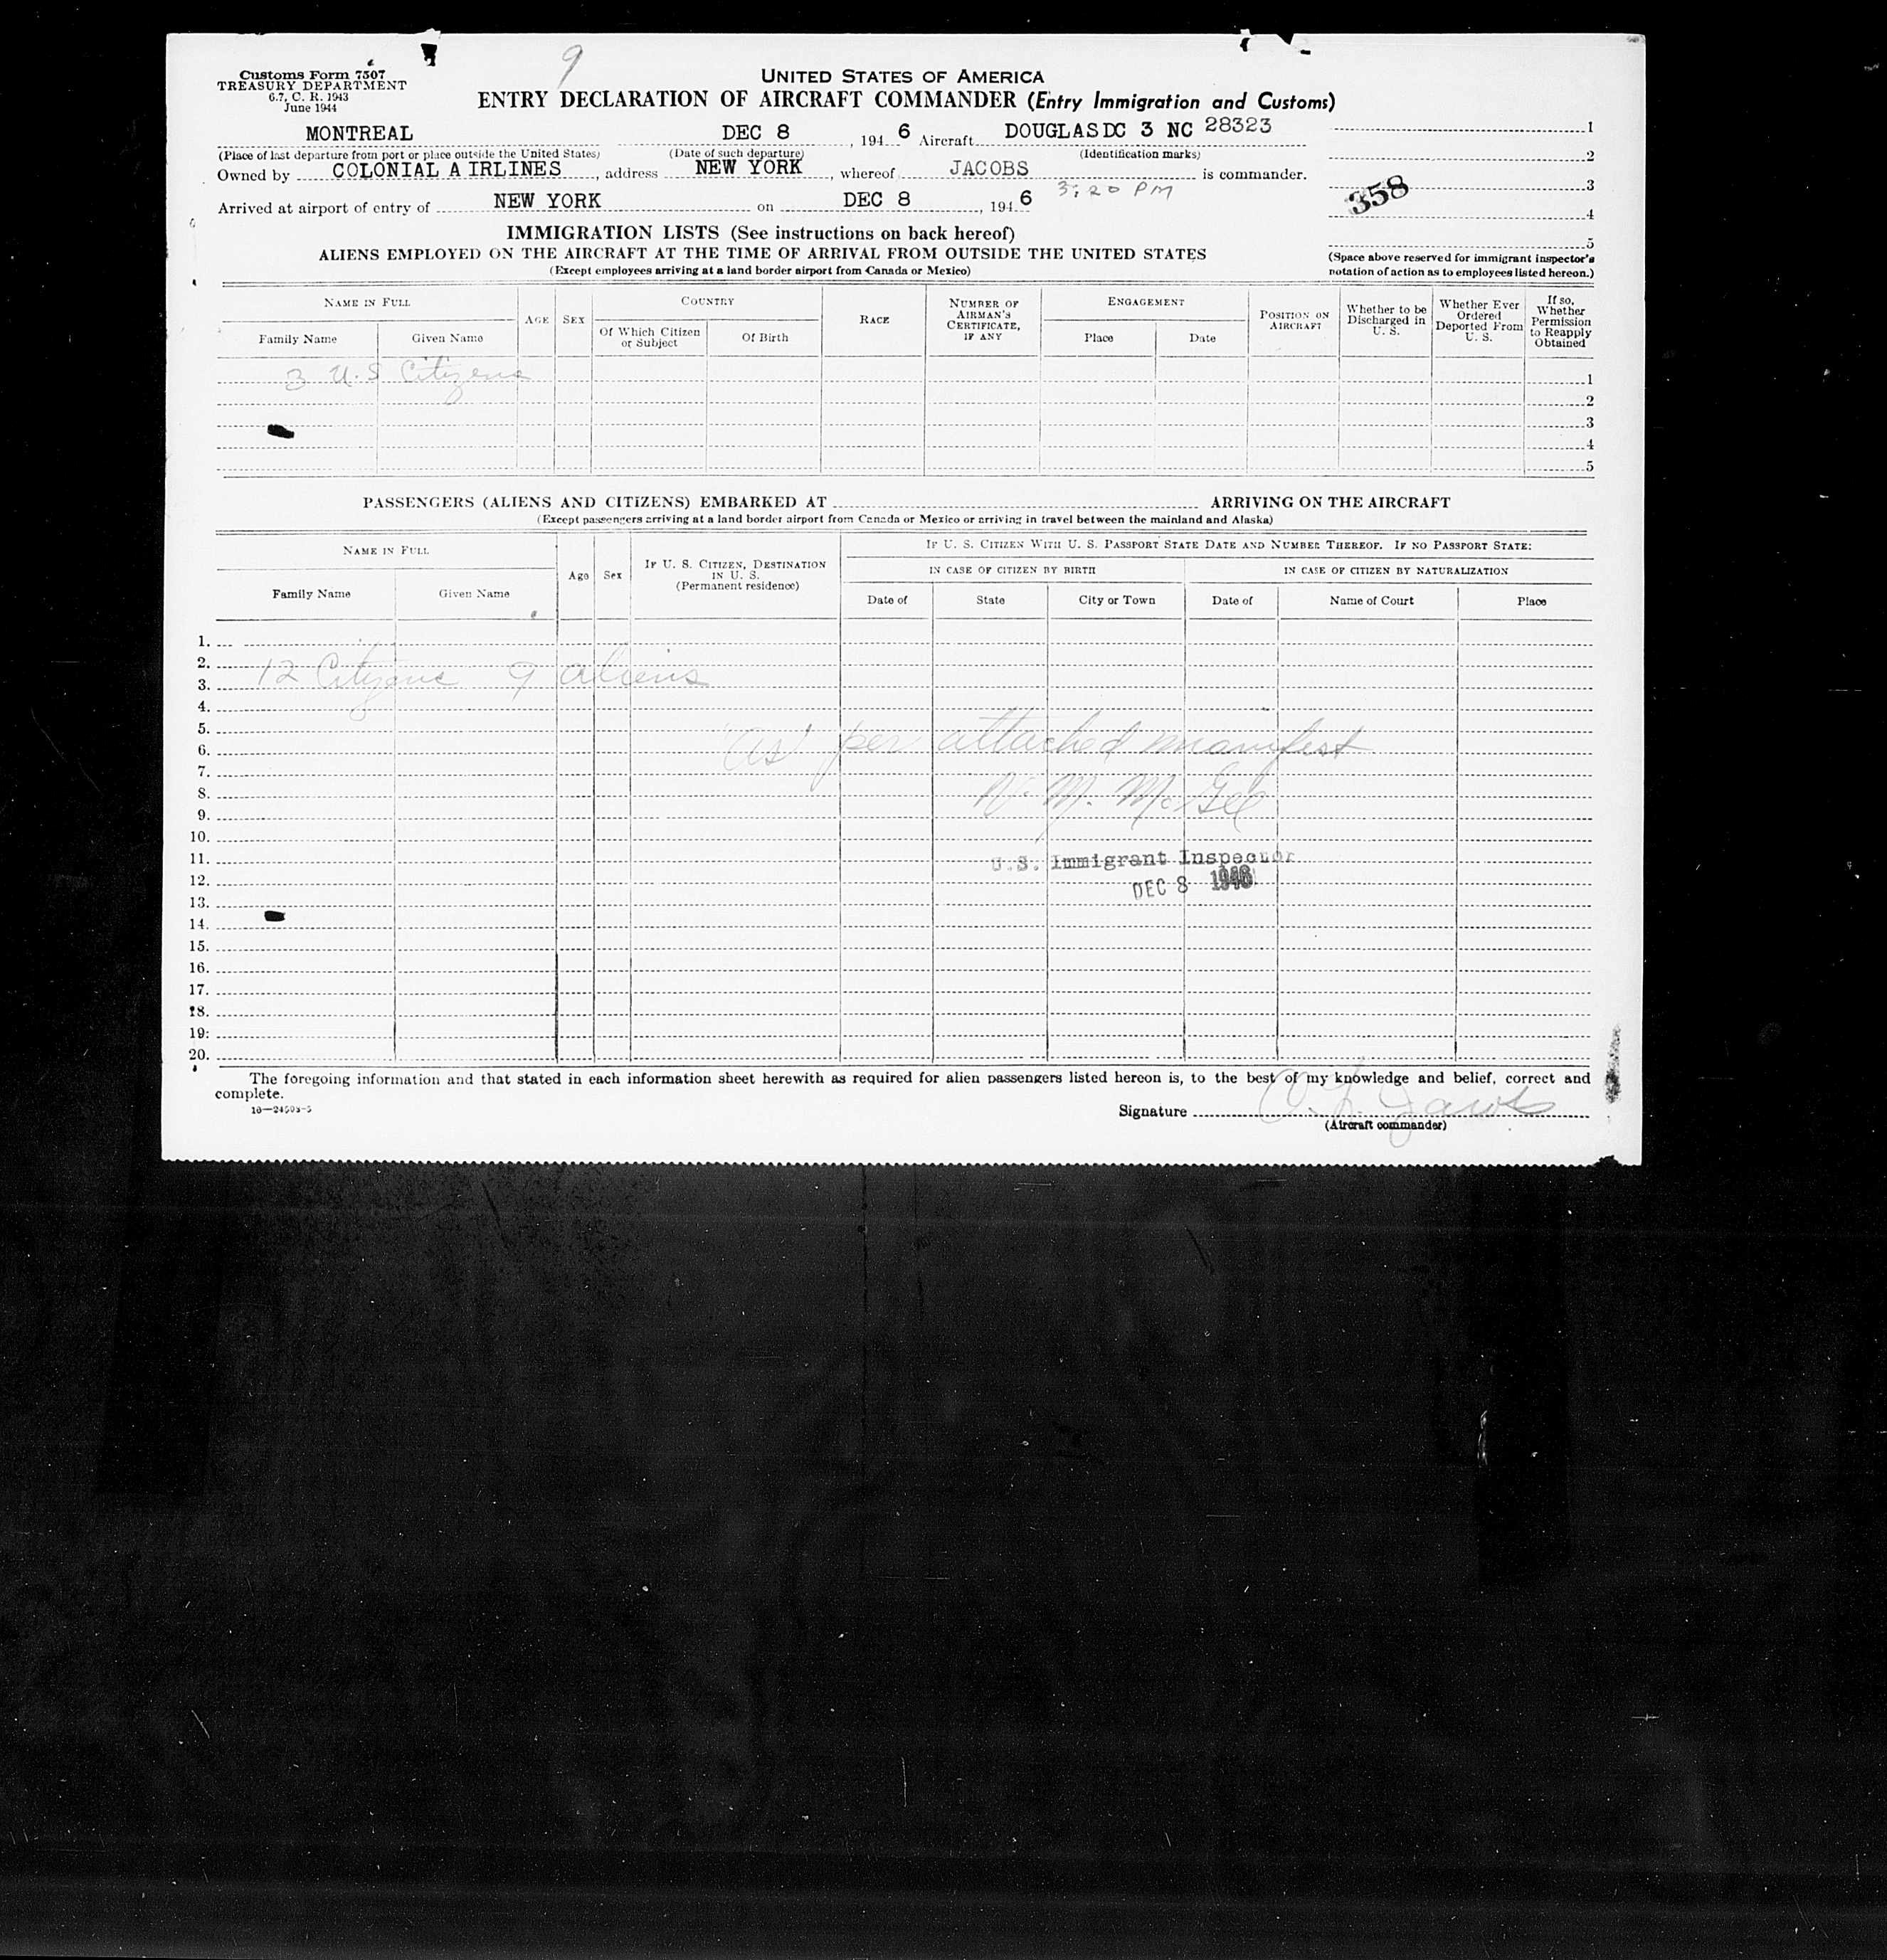 Customs Form 7507
TREASURY DEPARTMENT
6.7, C. R. 1943
June 1944
9
UNITED STATES OF AMERICA
ENTRY DECLARATION OF AIRCRAFT COMMANDER (Entry Immigration and Customs)
MONTREAL DEC 8, 194 6 Aircraft DOUGLAS DC 3 NC 28323
(Place of last departure from port or place outside the United States) (Date of such departure) (Identification marks)
Owned by COLONIAL A IRLINES, address NEW YORK, whereof JACOBS is commander.
3:20 PM
Arrived at airport of entry of NEW YORK on DEC 8, 194 6
1
2
3
4
5
358
(Space above reserved for immigrant inspector's notation of action as to employees listed hereon.)
IMMIGRATION LISTS (See instructions on back hereof)
ALIENS EMPLOYED ON THE AIRCRAFT AT THE TIME OF ARRIVAL FROM OUTSIDE THE UNITED STATES
(Except employees arriving at a land border airport from Canada or Mexico)
NAME IN FULL
Family Name
Given Name
AGE
SEX
COUNTRY
Of Which Citizen or Subject
Of Birth
RACE
NUMBER OF AIRMAN'S CERTIFICATE, IF ANY
ENGAGEMENT
Place
Date
POSITION ON AIRCRAFT
Whether to be Discharged in U. S.
Whether Ever Ordered Deported From U. S.
If so, Whether Permission to Reapply Obtained
3 U.S Citizens 1
2
3
4
5
PASSENGERS (ALIENS AND CITIZENS) EMBARKED AT ARRIVING ON THE AIRCRAFT
(Except passengers arriving at a land border airport from Canada or Mexico or arriving in travel between the mainland and Alaska)
NAME IN FULL
Family Name
Given Name
Age
Sex
IF U. S. CITIZEN, DESTINATION IN U. S.
(Permanent residence)
IF U. S. CITIZEN WITH U. S. PASSPORT STATE DATE AND NUMBER THEREOF. IF NO PASSPORT STATE:
IN CASE OF CITIZEN BY BIRTH
Date of
State
City or Town
IN CASE OF CITIZEN BY NATURALIZATION
Date of
Name of Court
Place
1.
2.
12 Citizens 9 aliens
3.
4.
5.
as per attached manifest
6.
7.
8.
N. M. McGee
9.
10.
11. U.S. Immigrant Inspector
12. DEC 8 1946
13.
14.
15.
16.
17.
18.
19.
20.
The foregoing information and that stated in each information sheet herewith as required for alien passengers listed hereon is, to the best of my knowledge and belief, correct and
complete.
16—24503-5
Signature
(Aircraft commander)